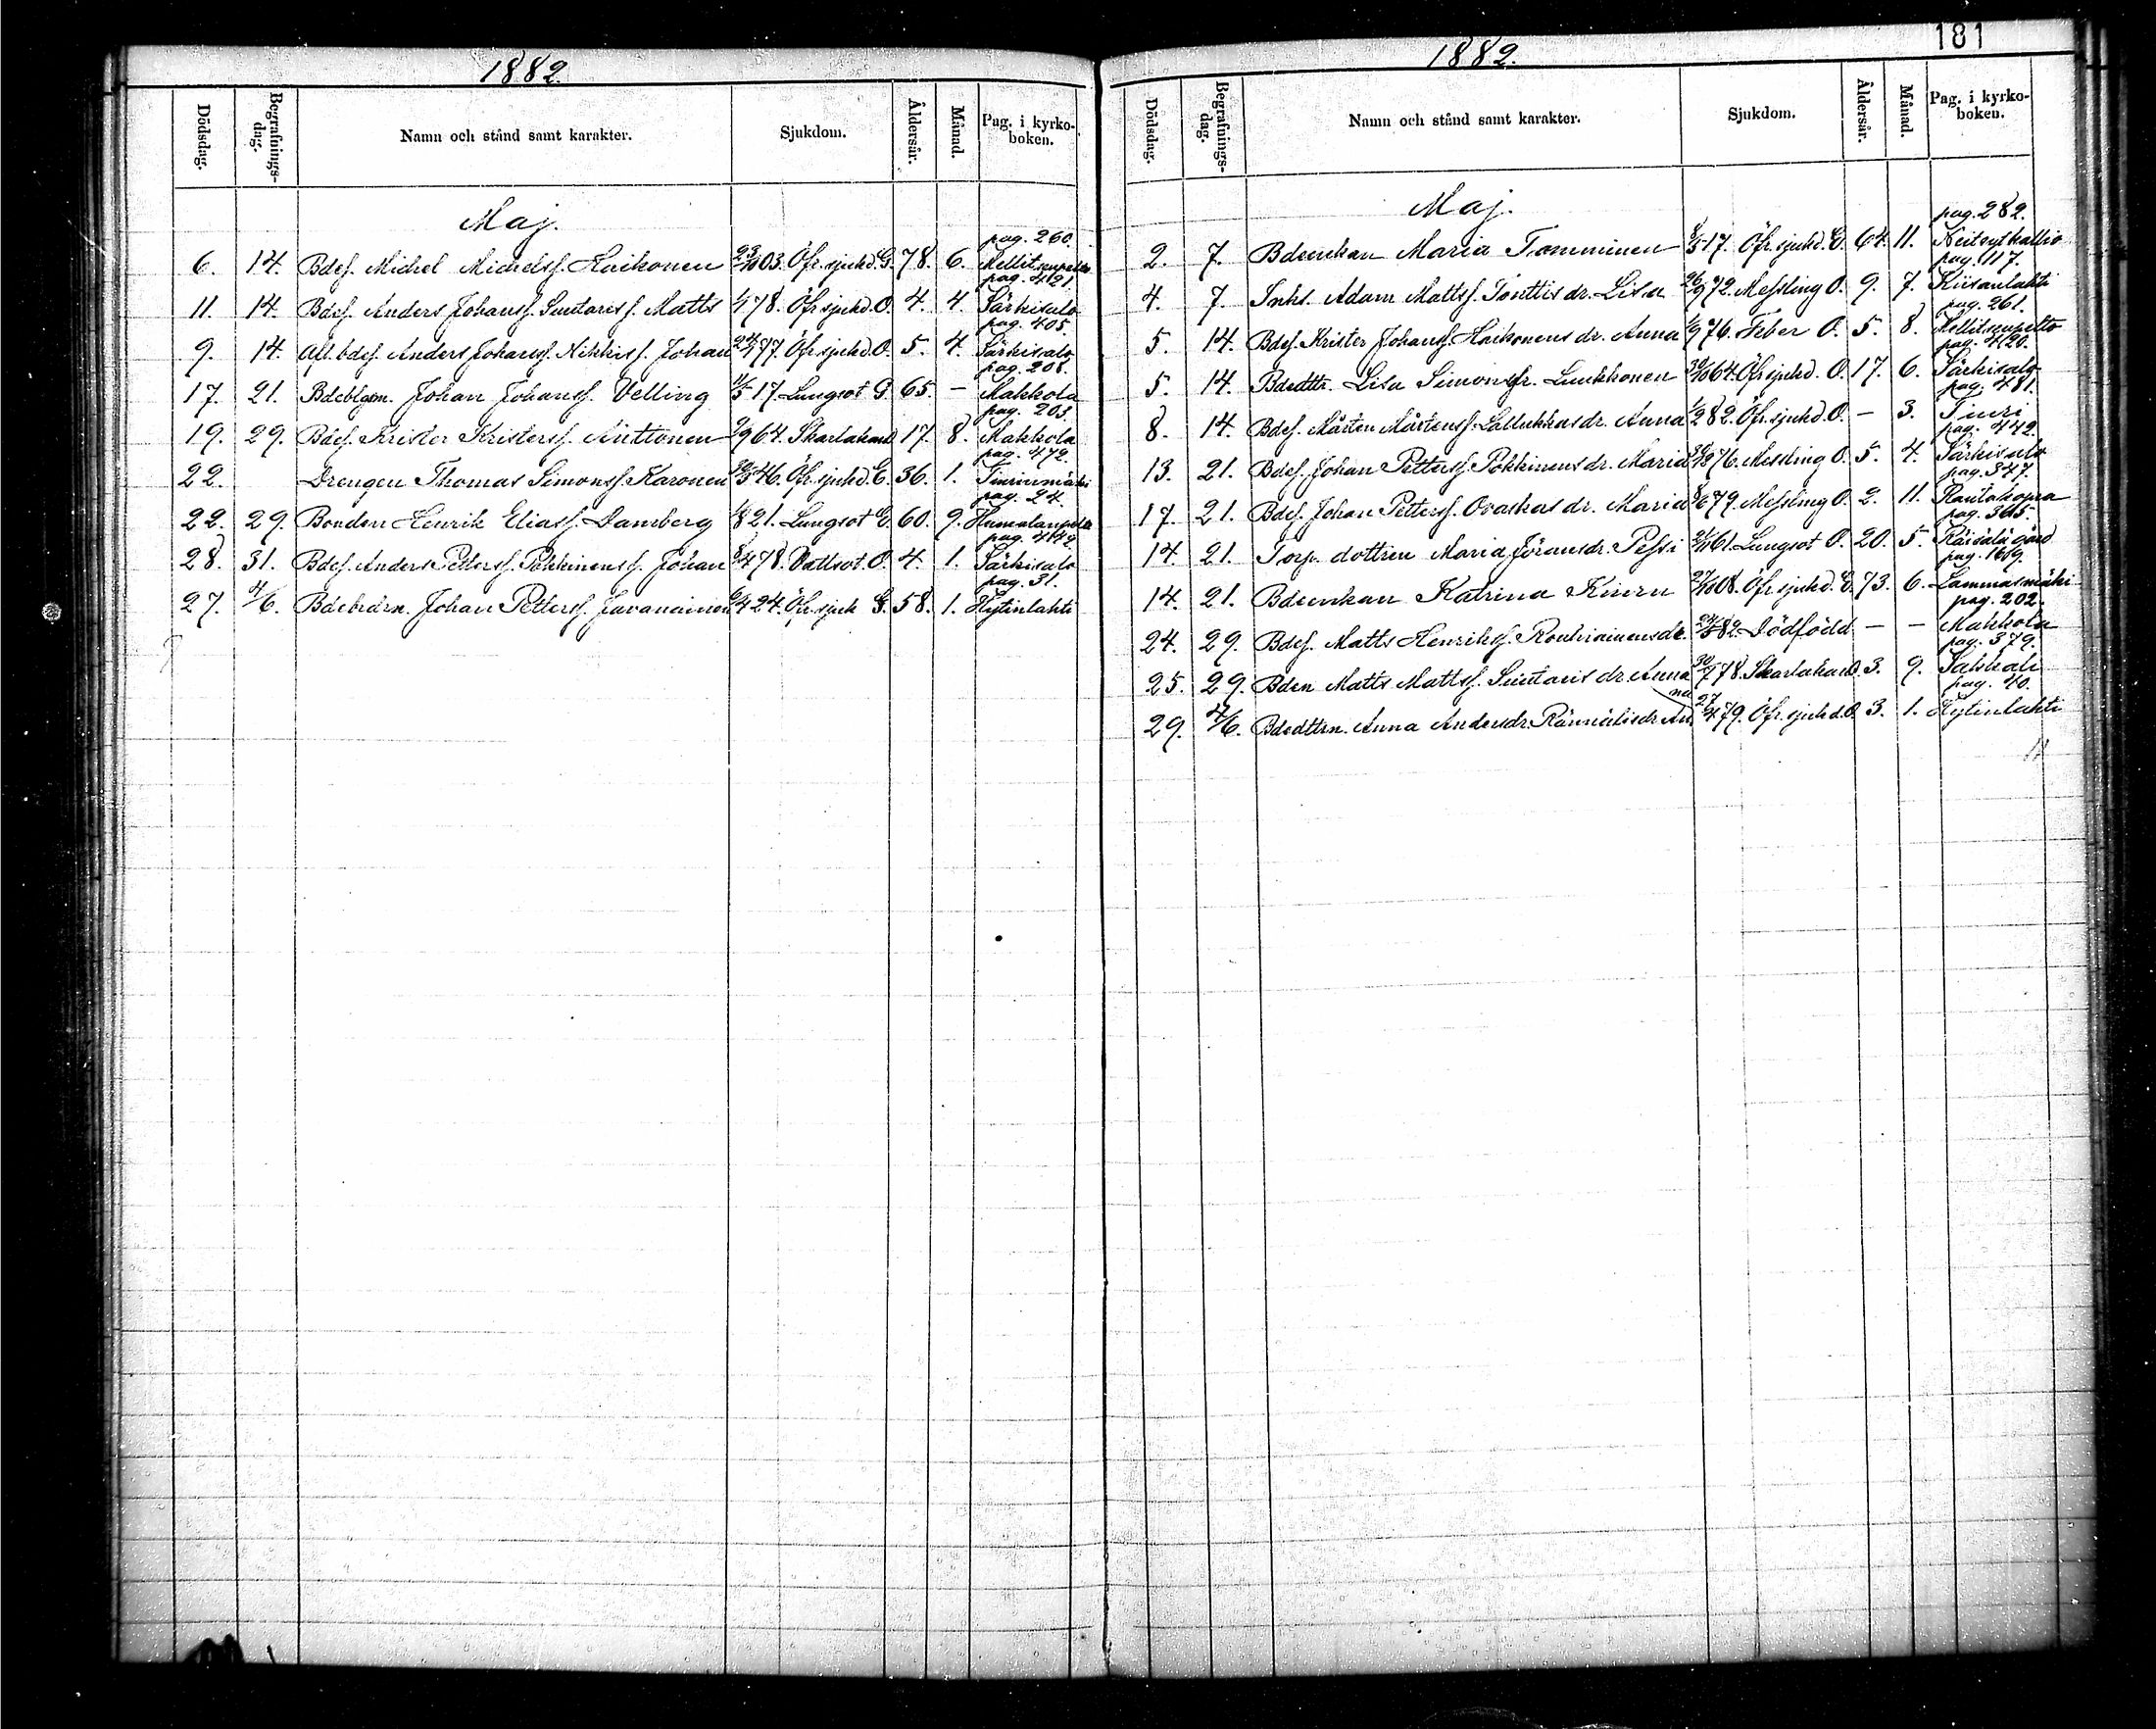 1882.
Dödsdag. Begrafnings-dag. Namn och stånd samt karakter. Sjukdom. Åldersår. Månad. Pag. i kyrko-boken.
Maj.
pag. 260.
6. 14. Bdes. Michel Michelss. Haikonen 23/10 03. Öfr. sjukd. G. 78. 6. Mellitsenpelto
pag. 421.
11. 14. Bdes. Anders Johanss. Suutaris s. Matts 1/1 78. Öfr. sjukd. O. 4. 4. Särkisalo
pag. 405.
9. 14. Afl. bdes. Anders Johanss. Nikkis s. Johan 24/1 77. Öfr. sjukd. O. 5. 4. Särkisalo
pag. 208.
17. 21. Bdeblgsm. Johan Johanss. Velling 1/5 17. Lungsot G. 65. — Makkola
pag. 203
19. 29. Bdes. Krister Kristerss. Anttonen 9 64. Skarlakand 17. 8. Makkola
pag. 472.
22. Drengen Thomas Simonss. Karonen 46. Öfr. sjukd. E. 36. 1. Tiurinmäki
pag. 24.
22. 29. Bonden Henrik Eliass. Damberg 8 21. Lungsot G. 60. 9. Humalanpelto
pag. 442
28. 31. Bdes. Anders Petterss. Pokkinens s. Johan 4 78. Vattsot. O. 4. 1. Särkisalo
pag. 31.
27. 4/6. Bdebrdrn. Johan Petterss. Javanainen 4 24. Öfr. sjuk G. 58. 1. Hytinlahti
181
1882.
Dödsdag. Begrafnings-dag. Namn och stånd samt karakter. Sjukdom. Åldersår. Månad. Pag. i kyrko-boken.
Maj.
pag. 282.
2. 7. Bdeenkan Maria Tomminen 5 17. Öfr. sjukd. E. 64. 11. Neitsytkallio
pag. 117.
4. 7. Inhs. Adam Mattss. Tonttis dr. Lisa 26/9 72. Messling O. 9. 7. Kiisanlahti
pag. 261.
5. 14. Bdes. Krister Johanss. Haikonens dr. Anna 9 76. Feber O. 5. 8. Mellitsenpelto
pag. 420.
5. 14. Bdedttr. Lisa Simonsdr. Luukkonen 30/10 64. Öfr. sjukd. O. 17. 6. Särkisalo
pag. 481.
8. 14. Bdes. Mårten Mårtenss. Lallukkas dr. Anna 1/2 82. Öfr. sjukd. O. — 3. Tiuri
pag. 442.
13. 21. Bdes. Johan Petterss. Pokkinens dr. Maria 76. Messling O. 5. 4. Särkisalo
pag. 347.
17. 21. Bdes. Johan Petterss. Ovaskas dr. Maria 6 79. Messling O. 2. 11. Rautakopra
pag. 365.
14. 21. Torp. dottren Maria Jöransdr. Pessi 61. Lungsot O. 20. 5. Räisälä gård
pag. 169.
14. 21. Bdeenkan Katrina Kiuru 27/10 08. Öfr. sjukd. E. 73. 6. Lammasmäki
pag. 202.
24. 29. Bdes. Matts Henrikss. Rouhiainens dr. 24/5 82. Dödfödd — — Makkola
pag. 379.
25. 29. Bden Matts Mattss. Suutaris dr. Anna 30/7 78. Skarlakand 3. 9. Sakkali
pag. 40.
29. 4/6. Bdedttrn. Anna Andersdr. Rännälis dr. Anna 27/4 79. Öfr. sjukd. O. 3. 1. Hytinlahti